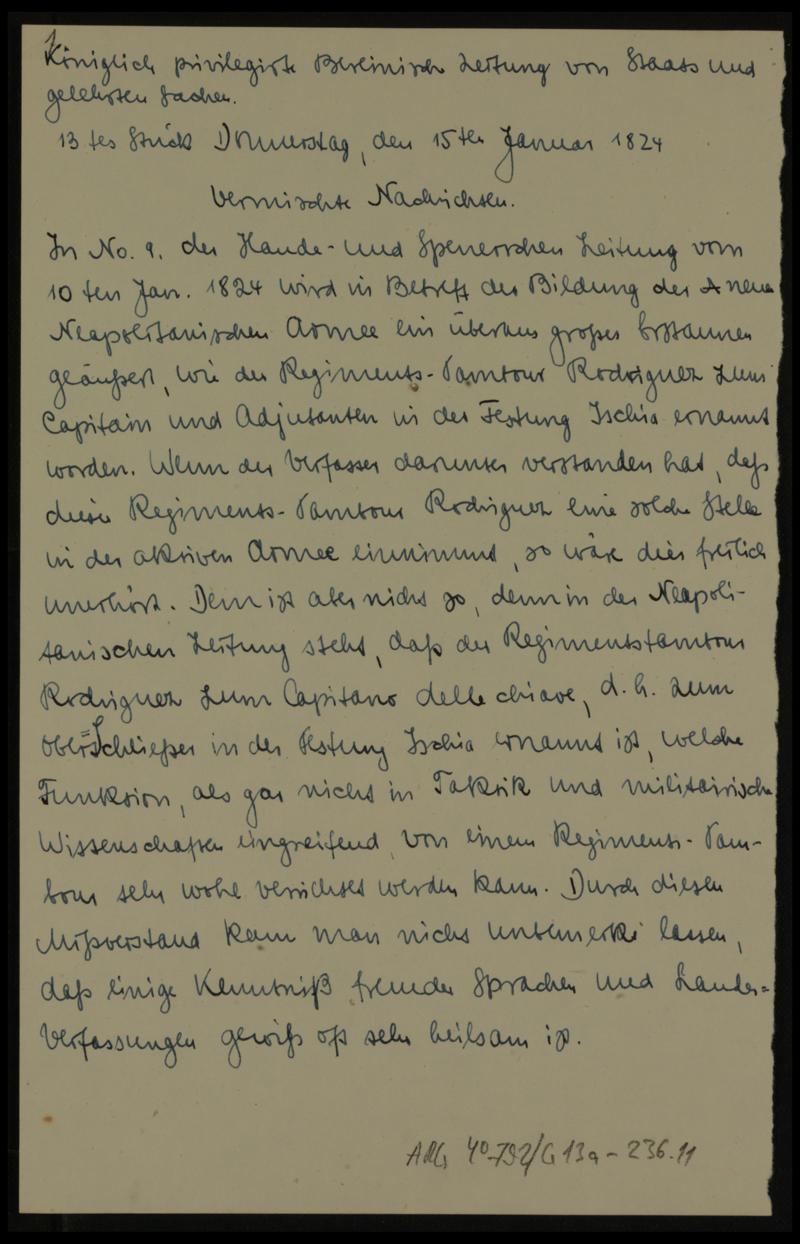 Königlich privilegirte Berlinische Zeitung von Staats und
gelehrten Sachen.
13 tes Stück Donnerstag, den 15ten Januar 1824
Vermischte Nachrichten.
In No. 9. der Haude- und Spenerschen Zeitung vom
10 ten Jan. 1824 wird in Betreff der Bildung der neuen
Neapolitanischen Armee ein überaus großes Erstaunen
geäußert, wie der Regiments-Tambour Rodriguez zum
Capitain und Adjutanten in der Festung Ischia ernannt
worden. Wenn der Verfasser darunter verstanden hat, daß
dieser Regiments-Tambour Rodriguez eine solche Stelle
in der aktiven Armee einnimmt, so wäre dies freilich
unerhört. Dem ist aber nicht so, denn in der Neapoli-
tanischen Zeitung steht, daß der Regimentstambour
Rodriguez zum Capitano delle chiave, d. h. zum
Ober=Schließer in der Festung Ischia ernannt ist, welche
Funktion, als gar nicht in Taktik und militairische
Wissenschaften eingreifend, von einem Regiments-Tam-
bour sehr wohl verrichtet werden kann. Durch diesen
Mißverstand kann man nicht unbemerkt lassen,
daß einige Kenntniß fremder Sprachen und Landes=
Verfassungen gewiß oft sehr heilsam ist.
40-792/G 13a - 236.11